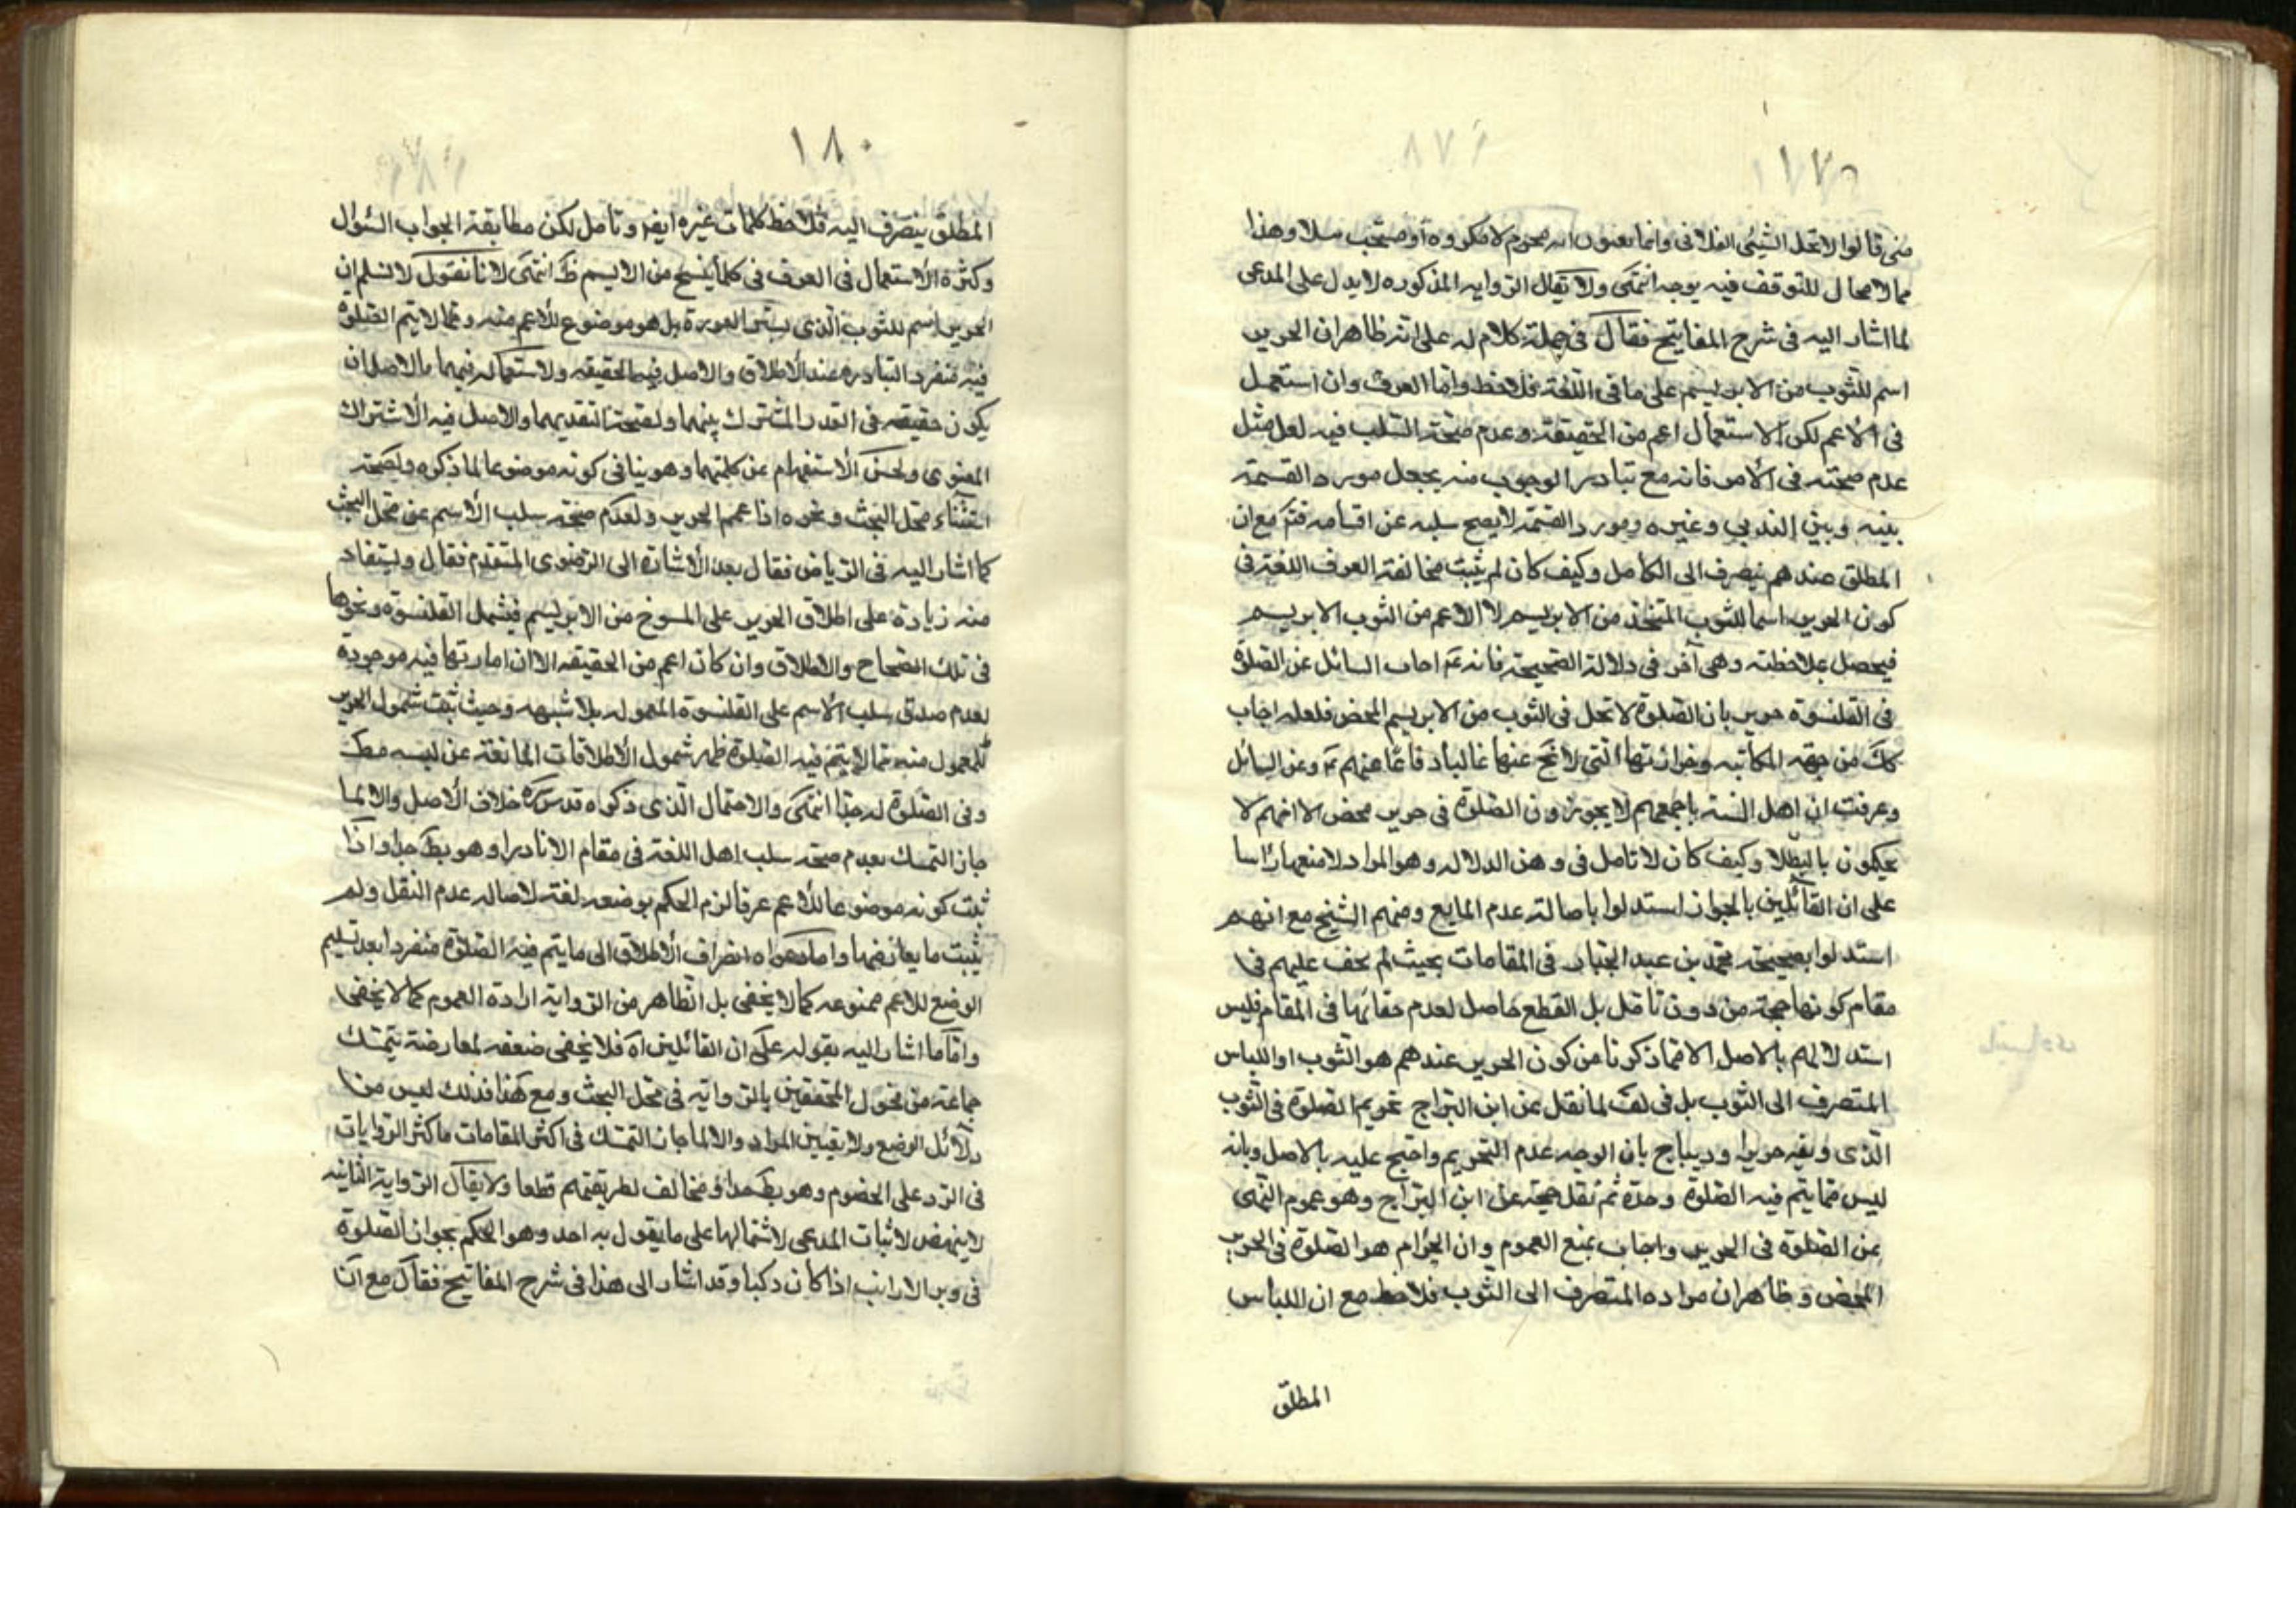 ١٧٩
متى قالوا لا تحل الشيئى الفلانى وانما يعنون انه محرم لا مكروه او مستحب مثلا وهذا
مما لا مجال للتوقف فيه بوجه انتهى ولا يقال الروايه المذكوره لا يدل على المدعى
لما اشار اليه فى شرح المفاتيح فقال فى جملة كلام له على انه ظاهر ان الحرير
اسم للثوب من الابريسم على ما فى اللغة فلاحظ واما العرف وان استعمل
فى الاعم لكن الاستعمال اعم من الحقيقة وعدم صحة السلب فيه لعل مثل
عدم صحته فى الامر فانه مع تبادر الوجوب منه يجعل مورد القسمة
بينه وبين الندبى وغيره ومورد القسمة لا يصح سلبه عن اقسامه فتم مع ان
المطلق عندهم ينصرف الى الكامل وكيف كان لم يثبت مخالفة العرف اللغة فى
كون الحرير اسما للثوب المتخذ من الابريسم لا الاعم من الثوب الابريسم
فيحصل بملاحظته وهى آخر فى دلالة الصحيحة فانه عم اجاب السائل عن الصلوة
فى القلنسوة حرير بان الصلوة لا تحل فى الثوب من الابريسم المحض فلعله اجاب
كك من جهة المكاتبه وخرازتها التى لا تخ عنها غالبا دفاعا عنهم عم وعن السائل
وعرفت ان اهل السنة باجمعهم لا يجوزون الصلوة فى حرير محض الا انهم لا
يحكمون بالبطلا وكيف كان لا تامل فى وهن الدلاله وهو المراد لا منعها راسا
على ان القائلين بالجواز استدلوا باصالة عدم المانع ومنهم الشيخ مع انهم
استدلوا بصحيحة محمد بن عبد الجبار فى المقامات بحيث لم يخف عليهم فى
مقام كونها حجة من دون تامل بل القطع حاصل لعدم خفائها فى المقام فليس
استدلالهم بالاصل الا لما ذكرنا من كون الحرير عندهم هو الثوب او اللباس
المتصرف الى الثوب بل فى لف لما نقل عن ابن البراج تحريم الصلوة فى الثوب
الذى وبقيه حرير او ديباج بان الوجه عدم التحريم واحتج عليه بالاصل وبانه
ليس مما يتم فيه الصلوة وحده ثم نقل حجة عن ابن البراج وهو عموم النهى
عن الصلوة فى الحرير واجاب بمنع العموم وان الحرام هو الصلوة فى الحرير
المحض وظاهر ان مراده المتصرف الى الثوب فلاحظ مع ان اللباس
المطلق
١٨٠
المطلق ينصرف اليه فلاحظ كلمات غيره ايضا وتامل لكن مطابقة الجواب السؤال
وكثرة الاستعمال فى العرف فى كلما ينسج من الابريسم ظك انتهى لانا نقول لا نسلم ان
الحرير اسم للثوب الذى يستر العورة بل هو موضوع للاعم منه ومما لا يتم الصلوة
فيه منفردا لتبادره عند الاطلاق والاصل فيه الحقيقه ولاستعماله فيهما والاصل ان
يكون حقيقة فى القدر المشترك بينهما ولصحة تقسيمهما والاصل فيه الاشتراك
المعنوى ولحسن الاستفهام عن كلمتهما وهو ينافى كونه موضوعا لما ذكره ولصحة
استثناء محل البحث ونحوه اذا عمم الحرير ولعدم صحة سلب الاسم عن محل البحث
كما اشار اليه فى الرياض فقال بعد الاشارة الى الرضوى المتقدم فقال ويستفاد
منه زيادة على اطلاق الحرير على المنسوخ من الابريسم فيشمل القلنسوة ونحوها
فى تلك الصحاح والاطلاق وان كان اعم من الحقيقه الا ان امارتها فيه موجودة
لعدم صدق سلب الاسم على القلنسوة المعموله بلا شبهه وحيث ثبت شمول الحرير
للمعمول منه مما لا يتم فيه الصلوة ظهر شمول الاطلاقات المانعة عن لبسه مط
وفى الصلوة له جدا انتهى والاحتمال الذى ذكراه قدس سره خلاف الاصل والا لما
جاز التمسك بعدم صحة سلب اهل اللغة فى مقام الا نادرا وهو بط جدا واذا
ثبت كونه موضوعا للاعم عرفا لزم الحكم بوضعه لغة لاصاله عدم النقل ولم
يثبت ما يعارضها واما دعواه انصراف الاطلاق الى ما يتم فيه الصلوة منفردا بعد تسليم
الوضع للاعم ممنوعه كما لا يخفى بل الظاهر من الرواية ارادة العموم كما لا يخفى
واما ما اشار اليه بقوله على ان القائلين اه فلا يخفى ضعفه لمعارضة بتمسك
جماعة من فحول المحققين بالرواية فى محل البحث ومع هذا فذلك ليس من
دلائل الوضع ولا بقيين المراد والا لما جاز التمسك فى اكثر المقامات باكثر الروايات
فى الرد على الخصوم وهو بط جدا ومخالف لطريقتهم قطعا ولا يقال الرواية الثانيه
لا ينهض لاثبات المدعى لاشتمالها على ما يقول به احد وهو الحكم بجواز الصلوة
فى وبر الارانب اذا كان دكيا وقد اشار الى هذا فى شرح المفاتيح فقال مع ان